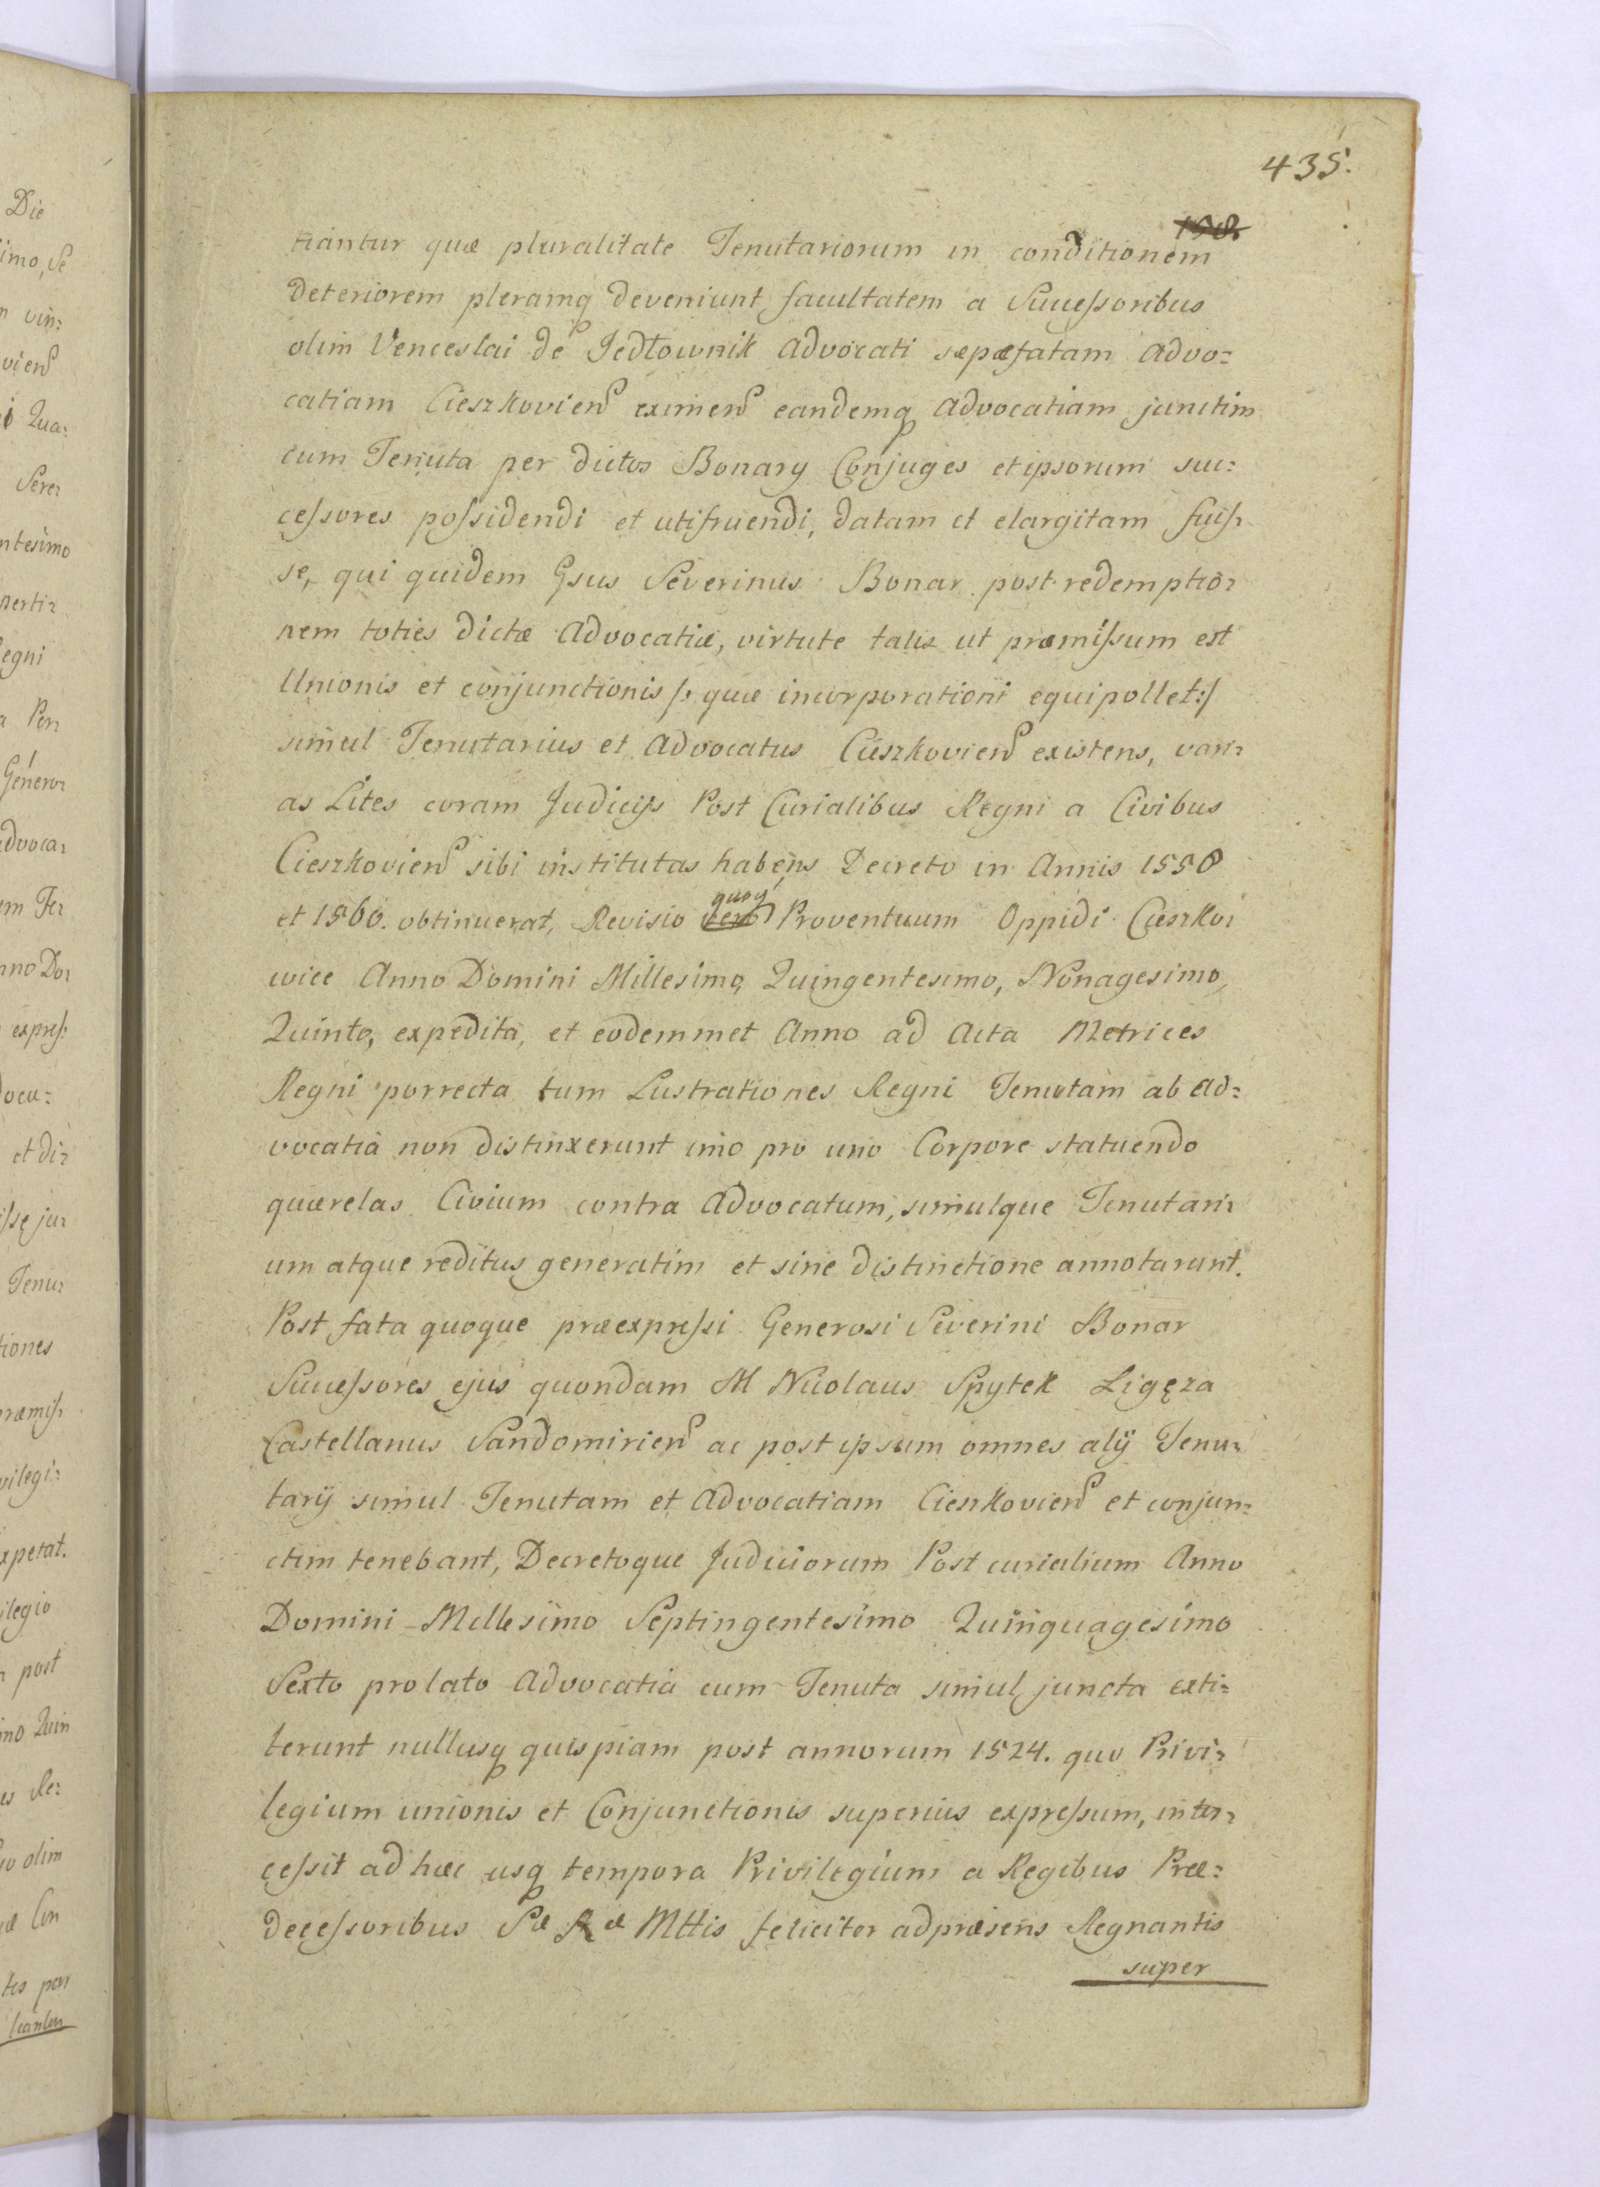 435.
198.
tiantur quæ pluralitate Tenutariorum in conditionem
deteriorem pleramq deveniunt facultatem a Successoribus
olim Venceslai de Jedłownik Advocati sæpæfatam Advo=
catiam Cieszkovien eximen eandemq Advocatiam junctim
cum Tenuta per dictos Bonary Conjuges et ipsorum suc=
cessores possidendi et utifruendi, datam et elargitam fuis=
se, qui quidem Gsus Severinus Bonar post redemptio=
nem toties dictæ Advocatiæ, virtute talis ut præmissum est
Unionis et conjunctionis /: quæ incorporationi equipollet :/
simul Tenutarius et Advocatus Cieszkovien existens, vari=
as Lites coram Judicijs Post Curialibus Regni a Civibus
Cieszkovien sibi institutas habens Decreto in Annis 1558
et 1560. obtinuerat, Revisio vero quoq Proventuum Oppidi Cieszko=
wice Anno Domini Millesimo, Quingentesimo, Nonagesimo,
Quinto, expedita, et eodemmet Anno ad Acta Metrices
Regni porrecta tum Lustrationes Regni Tenutam ab Ad=
vocatia non distinxerunt imo pro uno Corpore statuendo
quærelas Civium contra Advocatum, simulque Tenutari=
um atque reditus generatim et sine distinctione annotarunt.
Post fata quoque præexpressi Generosi Severini Bonar
Successores ejus quondam M Nicolaus Spytek Ligęza
Castellanus Sandomirien ac post ipsum omnes alij Tenu=
tarij simul Tenutam et Advocatiam Cieszkovien et conjun=
ctim tenebant, Decretoque Judiciorum Post curialium Anno
Domini Millesimo Septingentesimo Quinquagesimo
Sexto prolato Advocatia cum Tenuta simul juncta exti=
terunt nullusq quispiam post annorum 1524. quo Privi=
legium unionis et Conjunctionis superius expressum, inter=
cessit ad hæc usq tempora Privilegium a Regibus Præ=
decessoribus Sæ Ræ Mttis feliciter ad præsens Regnantis
super